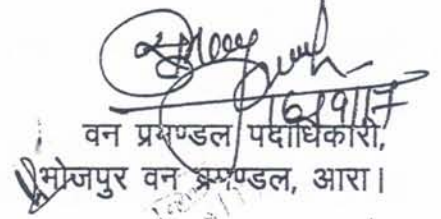 16/9/17
वन प्रमण्डल पदाधिकारी,
भोजपुर वन प्रमण्डल, आरा।